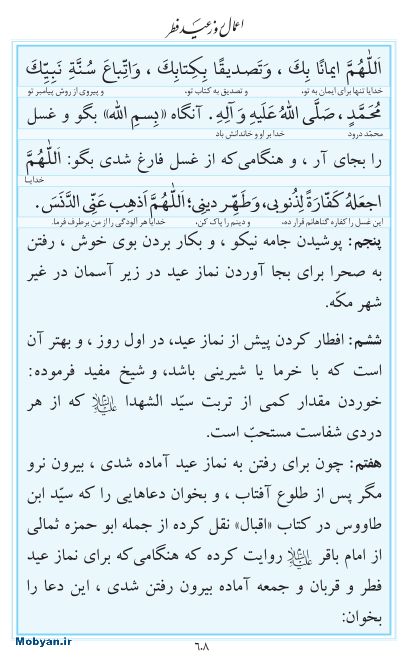 اعمال روز عید فطر
اَللّٰهُمَّ ايمانًا بِكَ ، وَتَصديقًا بِكِتابِكَ ، وَاتِّباعَ سُنَّةِ نَبِيِّكَ
خدایا تنها برای ایمان به تو، و تصدیق به کتاب تو، و پیروی از روش پیامبر تو
مُحَمَّدٍ ، صَلَّی اللّٰهُ عَلَیهِ وَآلِهِ . آنگاه «بِسمِ اللّٰه» بگو و غسل
محمّد درود خدا بر او و خاندانش باد
را بجای آر ، و هنگامی‌که از غسل فارغ شدی بگو: اَللّٰهُمَّ
خدایا
اجعَلهُ كَفّارَةً لِذُنوبى، وَطَهِّر دينى؛ اَللّٰهُمَّ اَذهِب عَنِّى الدَّنَسَ.
این غسل را کفاره گناهانم قرار ده، و دینم را پاک کن، خدایا هر آلودگی را از من برطرف فرما.
پنجم: پوشیدن جامه نیکو ، و بکار بردن بوی خوش ، رفتن
به صحرا برای بجا آوردن نماز عید در زیر آسمان در غیر
شهر مکّه.
ششم: افطار کردن پیش از نماز عید، در اول روز ، و بهتر آن
است که با خرما یا شیرینی باشد، و شیخ مفید فرموده:
خوردن مقدار کمی از تربت سیّد الشهدا علیه‌السلام که از هر
دردی شفاست مستحبّ است.
هفتم: چون برای رفتن به نماز عید آماده شدی ، بیرون نرو
مگر پس از طلوع آفتاب ، و بخوان دعاهایی را که سیّد ابن
طاووس در کتاب «اقبال» نقل کرده از جمله ابو حمزه ثمالی
از امام باقر علیه‌السلام روایت کرده که هنگامی‌که برای نماز عید
فطر و قربان و جمعه آماده بیرون رفتن شدی ، این دعا را
بخوان:
۶۰۸
Mobyan.ir